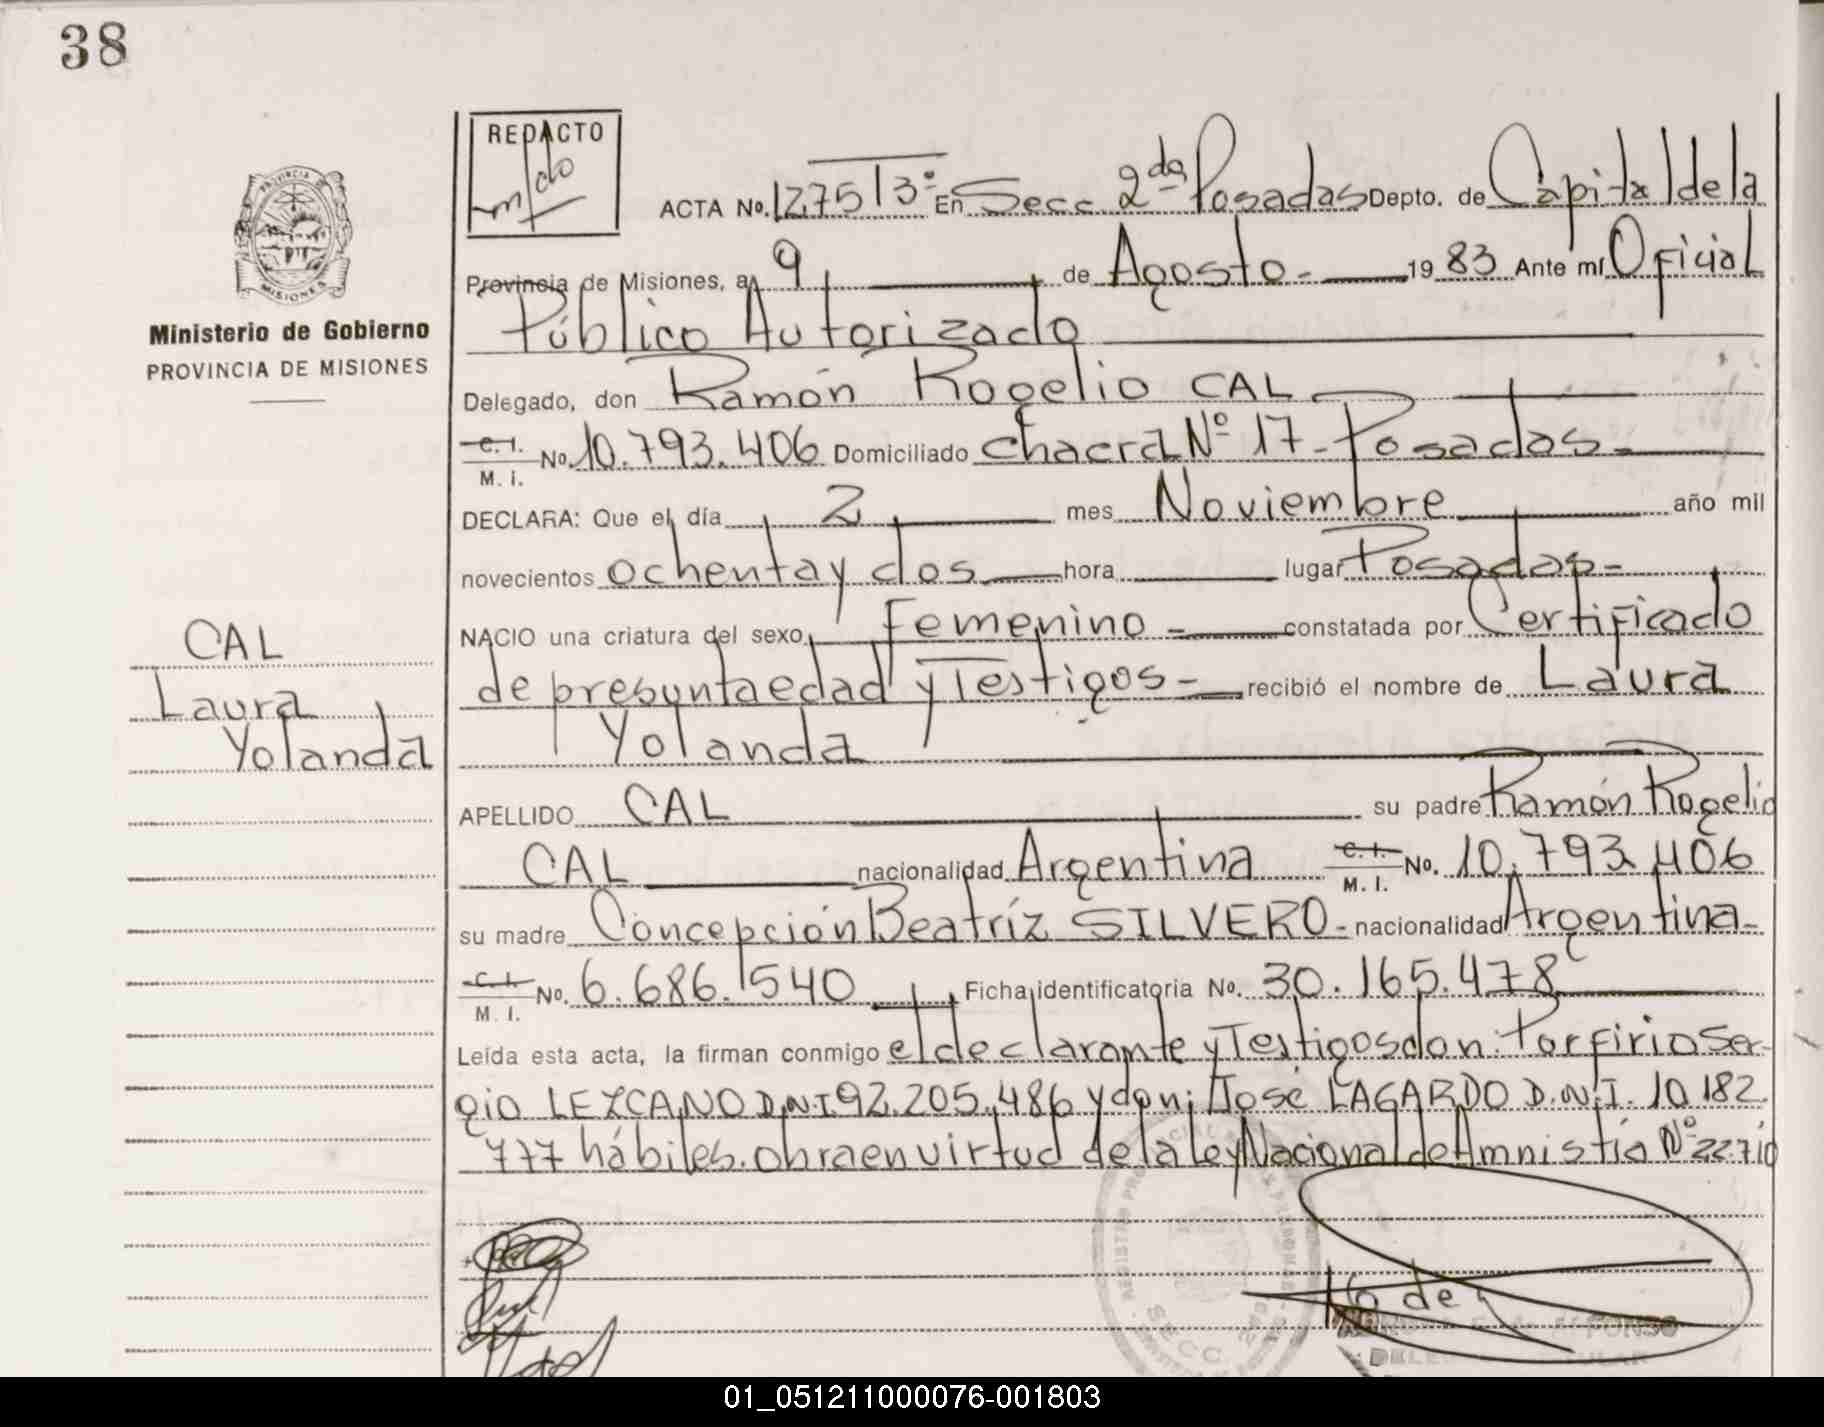 38
REDACTO
ACTA No. 1275 T 3º En Secc. 2da Posadas Depto. de Capital de la
Provincia de Misiones, a 9 de Agosto 1983 Ante mí Oficial
Público Autorizado
Ministerio de Gobierno
PROVINCIA DE MISIONES
Delegado, don Ramón Rogelio CAL
C. I. No. 10.793.406 Domiciliado Chacra Nº 17 - Posadas -
M. I.
DECLARA: Que el día 2 mes Noviembre año mil
novecientos ochenta y dos hora lugar Posadas -
NACIO una criatura del sexo Femenino - constatada por Certificado
de presunta edad y Testigos - recibió el nombre de Laura
Yolanda
CAL
Laura
Yolanda
APELLIDO CAL su padre Ramón Rogelio
CAL nacionalidad Argentina C. I. No. 10.793.406
M. I.
su madre Concepción Beatríz SILVERO - nacionalidad Argentina -
C. I. No. 6.686.540 Ficha identificatoria No. 30.165.478
M. I.
Leída esta acta, la firman conmigo el declarante y Testigos don: Porfirio Ser-
gio LEZCANO D.N.I 92.205.486 y don: José LAGARDO D.N.I. 10.182.
777 hábiles. obra en virtud de la Ley Nacional de Amnistía Nº 22.710
01_051211000076-001803